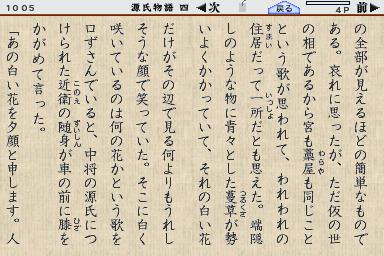 1005 源氏物語 四 ◀次 戻る 4P 前▶
の全部が見えるほどの簡単なもので
ある。哀れに思ったが、ただ仮の世
の相であるから宮も藁屋(わらや)も同じこと
という歌が思われて、われわれの
住居(すまい)だって一所(いっしょ)だとも思えた。端隠
しのような物に青々とした蔓草(つるくさ)が勢
いよくかかっていて、それの白い花
だけがその辺で見る何よりもうれし
そうな顔で笑っていた。そこに白く
咲いているのは何の花かという歌を
口ずさんでいると、中将の源氏につ
けられた近衛(このえ)の随身(ずいしん)が車の前に膝(ひざ)を
かがめて言った。
「あの白い花を夕顔と申します。人